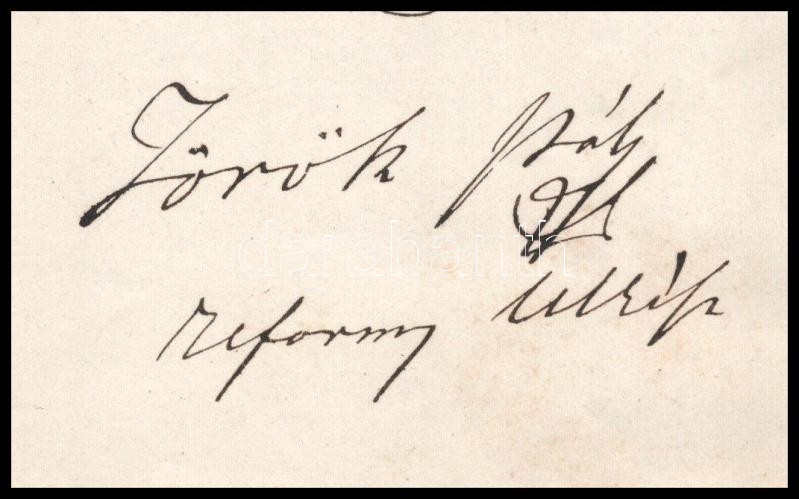 Török Pál
reform
darabanth